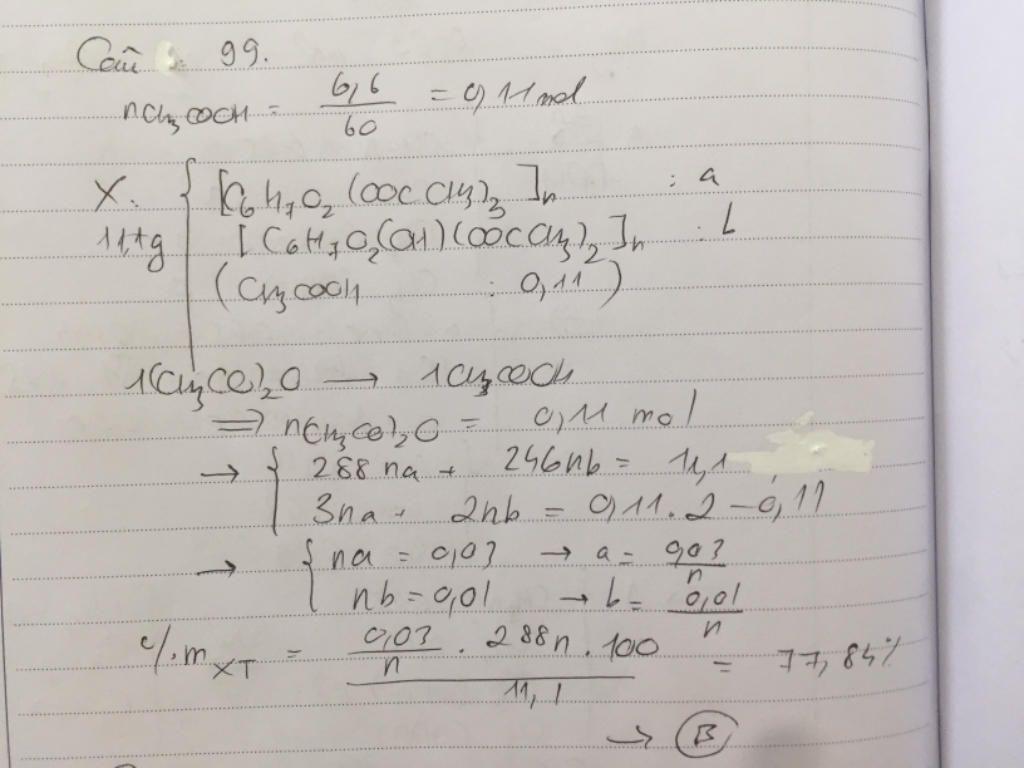 Câu 99.
nCH₃COOH = 6,6/60 = 0,11 mol
X. { [C₆H₇O₂(OOCCH₃)₃]n : a
11,1g [C₆H₇O₂(OH)(OOCCH₃)₂]n : b
(CH₃COOH : 0,11)
1(CH₃CO)₂O → 1CH₃COOH
⇒ n(CH₃CO)₂O = 0,11 mol
→ { 288na + 246nb = 11,1
3na + 2nb = 0,11.2 - 0,11
→ { na = 0,03 → a = 0,03/n
nb = 0,01 → b = 0,01/n
%mXT = (0,03/n . 288n . 100)/11,1 = 77,84%
→ B